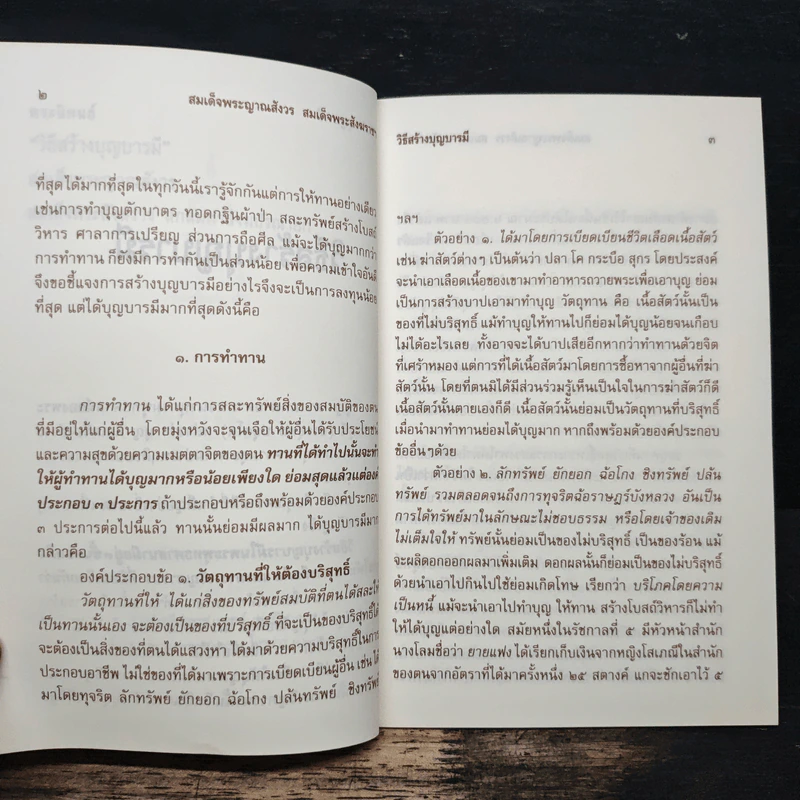 ๒
สมเด็จพระญาณสังวร สมเด็จพระสังฆราชฯ
ที่สุดได้มากที่สุดในทุกวันนี้เรารู้จักกันแต่การให้ทานอย่างเดียว
เช่นการทำบุญตักบาตร ทอดกฐินผ้าป่า สละทรัพย์สร้างโบสถ์
วิหาร ศาลาการเปรียญ ส่วนการถือศีล แม้จะได้บุญมากกว่า
การทำทาน ก็ยังมีการทำกันเป็นส่วนน้อย เพื่อความเข้าใจอันดี
จึงขอชี้แจงการสร้างบุญบารมีอย่างไรจึงจะเป็นการลงทุนน้อย
ที่สุด แต่ได้บุญบารมีมากที่สุดดังนี้คือ
๑. การทำทาน
การทำทาน ได้แก่การสละทรัพย์สิ่งของสมบัติของตน
ที่มีอยู่ให้แก่ผู้อื่น โดยมุ่งหวังจะจุนเจือให้ผู้อื่นได้รับประโยชน์
และความสุขด้วยความเมตตาจิตของตน ทานที่ได้ทำไปนั้นจะทำ
ให้ผู้ทำทานได้บุญมากหรือน้อยเพียงใด ย่อมสุดแล้วแต่องค์
ประกอบ ๓ ประการ ถ้าประกอบหรือถึงพร้อมด้วยองค์ประกอบ
๓ ประการต่อไปนี้แล้ว ทานนั้นย่อมมีผลมาก ได้บุญบารมีมาก
กล่าวคือ
องค์ประกอบข้อ ๑. วัตถุทานที่ให้ต้องบริสุทธิ์
วัตถุทานที่ให้ ได้แก่สิ่งของทรัพย์สมบัติที่ตนได้สละให้
เป็นทานนั้นเอง จะต้องเป็นของที่บริสุทธิ์ ที่จะเป็นของบริสุทธิ์ได้
จะต้องเป็นสิ่งของที่ตนได้แสวงหา ได้มาด้วยความบริสุทธิ์ในการ
ประกอบอาชีพ ไม่ใช่ของที่ได้มาเพราะการเบียดเบียนผู้อื่น เช่น ได้
มาโดยทุจริต ลักทรัพย์ ยักยอก ฉ้อโกง ปล้นทรัพย์ ชิงทรัพย์
วิธีสร้างบุญบารมี
๓
ฯลฯ
ตัวอย่าง ๑. ได้มาโดยการเบียดเบียนชีวิตเลือดเนื้อสัตว์
เช่น ฆ่าสัตว์ต่างๆ เป็นต้นว่า ปลา โค กระบือ สุกร โดยประสงค์
จะนำเอาเลือดเนื้อของเขามาทำอาหารถวายพระเพื่อเอาบุญ ย่อม
เป็นการสร้างบาปเอามาทำบุญ วัตถุทาน คือ เนื้อสัตว์นั้นเป็น
ของที่ไม่บริสุทธิ์ แม้ทำบุญให้ทานไปก็ย่อมได้บุญน้อยจนเกือบ
ไม่ได้อะไรเลย ทั้งอาจจะได้บาปเสียอีกหากว่าทำทานด้วยจิต
ที่เศร้าหมอง แต่การที่ได้เนื้อสัตว์มาโดยการซื้อหาจากผู้อื่นที่ฆ่า
สัตว์นั้น โดยที่ตนมิได้มีส่วนร่วมรู้เห็นเป็นใจในการฆ่าสัตว์ก็ดี
เนื้อสัตว์นั้นตายเองก็ดี เนื้อสัตว์นั้นย่อมเป็นวัตถุทานที่บริสุทธิ์
เมื่อนำมาทำทานย่อมได้บุญมาก หากถึงพร้อมด้วยองค์ประกอบ
ข้ออื่นๆด้วย
ตัวอย่าง ๒. ลักทรัพย์ ยักยอก ฉ้อโกง ชิงทรัพย์ ปล้น
ทรัพย์ รวมตลอดจนถึงการทุจริตฉ้อราษฎร์บังหลวง อันเป็น
การได้ทรัพย์มาในลักษณะไม่ชอบธรรม หรือโดยเจ้าของเดิม
ไม่เต็มใจให้ ทรัพย์นั้นย่อมเป็นของไม่บริสุทธิ์ เป็นของร้อน แม้
จะผลิดอกออกผลมาเพิ่มเติม ดอกผลนั้นก็ย่อมเป็นของไม่บริสุทธิ์
ด้วยนำเอาไปกินไปใช้ย่อมเกิดโทษ เรียกว่า บริโภคโดยความ
เป็นหนี้ แม้จะนำเอาไปทำบุญ ให้ทาน สร้างโบสถ์วิหารก็ไม่ทำ
ให้ได้บุญแต่อย่างใด สมัยหนึ่งในรัชกาลที่ ๕ มีหัวหน้าสำนัก
นางโลมชื่อว่า ยายแฟง ได้เรียกเก็บเงินจากหญิงโสเภณีในสำนัก
ของตนจากอัตราที่ได้มาครั้งหนึ่ง ๒๕ สตางค์ แกจะชักเอาไว้ ๕